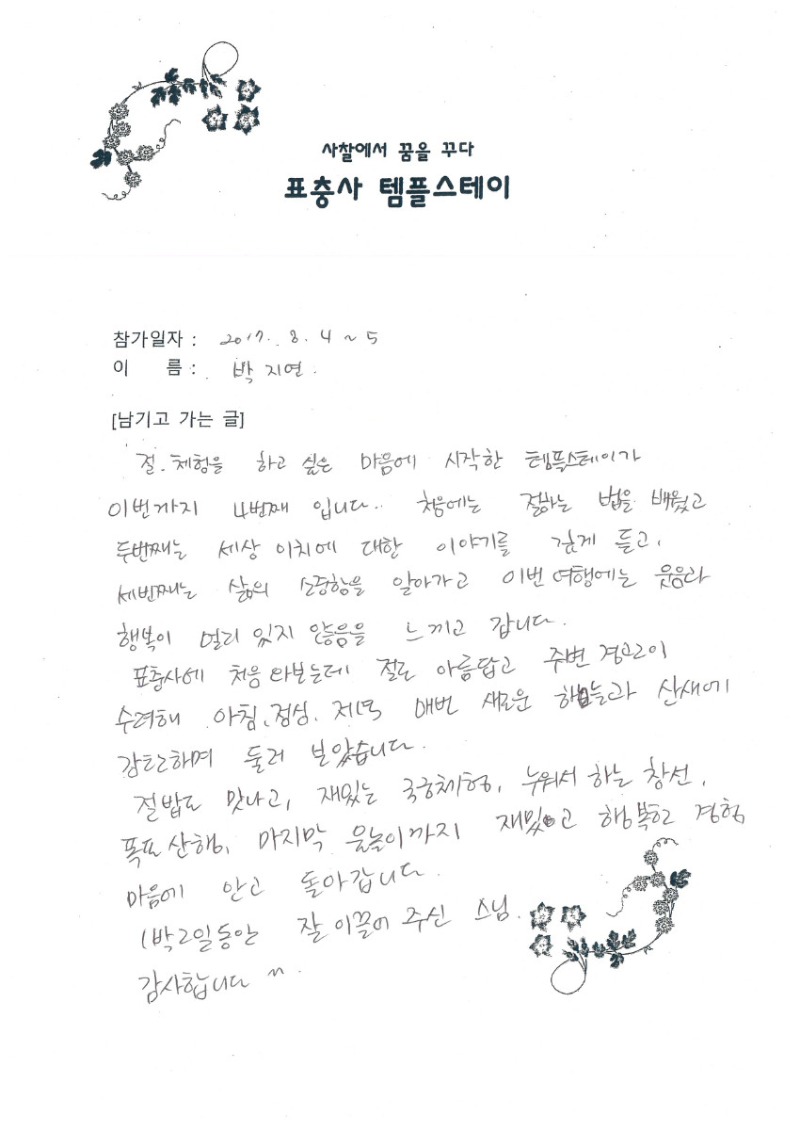 사찰에서 꿈을 꾸다
표충사 템플스테이
참가일자 : 2017. 8. 4 ~ 5
이 름 : 박 지연.
[남기고 가는 글]
절.체험을 하고 싶은 마음에 시작한 템플스테이가
이번까지 4번째 입니다.. 처음에는 절하는 법을 배웠고
두번째는 세상 이치에 대한 이야기를 깊게 듣고,
세번째는 삶의 소중함을 알아가고 이번 여행에는 웃음과
행복이 멀리 있지 않음을 느끼고 갑니다.
표충사에 처음 와보는데 절도 아름답고 주변 경관이
수려해 아침,점심, 저녁 매번 새로운 하늘과 산새에
감탄하며 둘러 보았습니다.
절밥도 맛나고, 재밌는 국궁체험, 누워서 하는 참선,
폭포산행, 마지막 윷놀이까지 재밌고 행복한 경험
마음에 안고 돌아갑니다.
1박2일동안 잘 이끌어 주신 스님.
감사합니다 ^^.